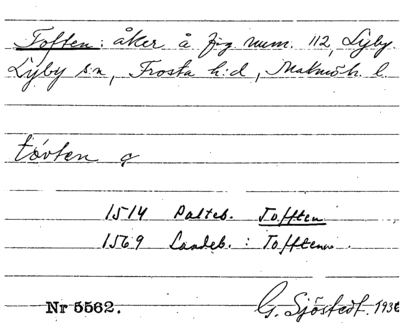 Toften: åker å fig. num. 112, Lyby
Lyby sn, Frosta h:d, Malmöh. l.
tóvten
1514 Palteb. Tofften
1569 Landeb.: Tofftenn
Nr 5562. G. Sjöstedt. 1936